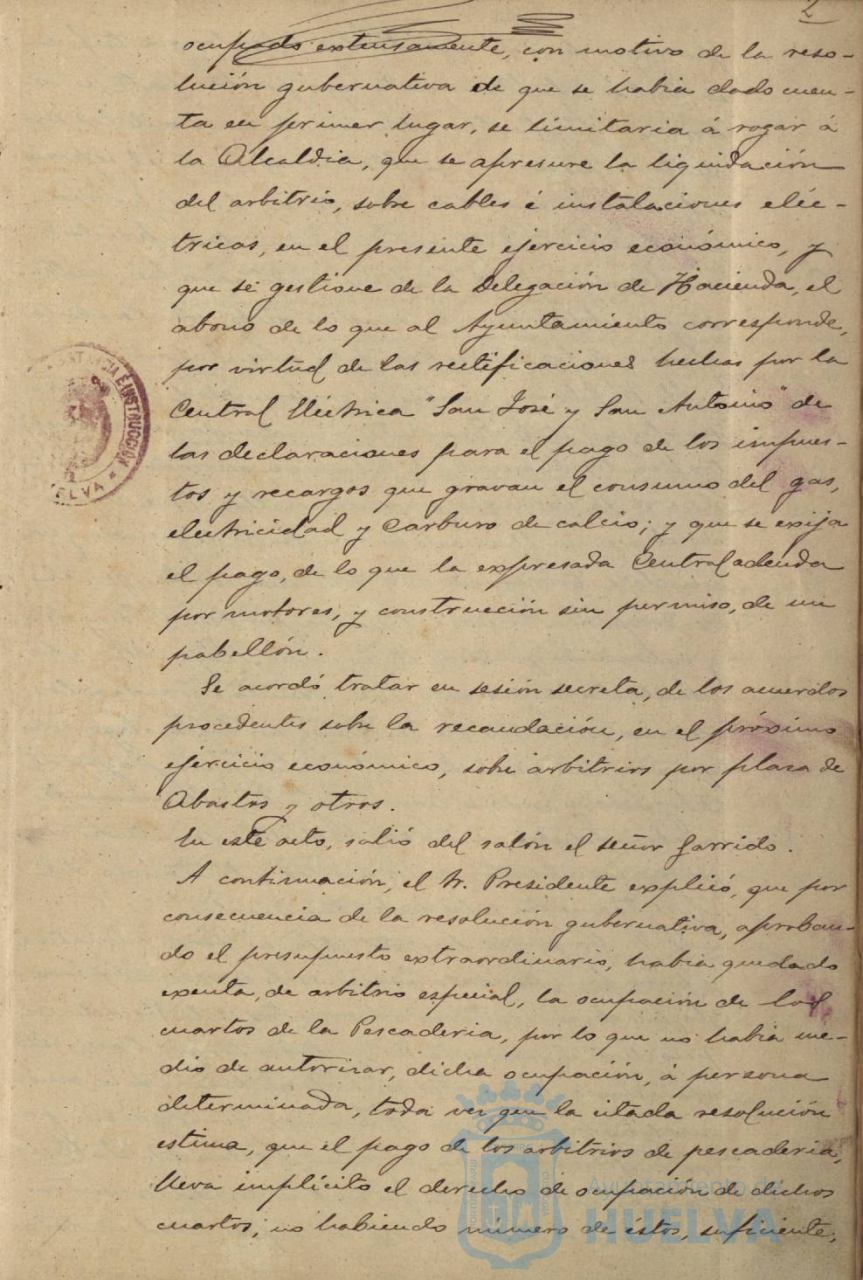 2
ocupado extensamente, con motivo de la reso-
lución gubernativa de que se habia dado cuen-
ta en primer lugar, se limitaria á rogar á
la Alcaldia, que se apresure la liquidación
del arbitrio, sobre cables é instalaciones eléc-
tricas, en el presente ejercicio económico, y
que se gestione de la Delegación de Hacienda, el
abono de lo que al Ayuntamiento corresponde,
por virtud de las rectificaciones hechas por la
Central Eléctrica "San José y San Antonio" de
las declaraciones para el pago de los impues-
tos y recargos que gravan el consumo del gas,
electricidad y Carburo de calcio; y que se exija
el pago, de lo que la expresada Central adeuda
por motores, y construcción sin permiso, de un
pabellón.
Se acordó tratar en sesión secreta, de los acuerdos
procedentes sobre la recaudación, en el próximo
ejercicio económico, sobre arbitrios por plaza de
Abastos y otros.
En este acto, salió del salón el señor Garrido.
A continuación, el Sr. Presidente explicó, que por
consecuencia de la resolución gubernativa, aproban-
do el presupuesto extraordinario, habia quedado
exenta, de arbitrio especial, la ocupación de los
cuartos de la Pescaderia, por lo que no habia me-
dio de autorizar, dicha ocupación, á persona
determinada, toda vez que la citada resolución
estima, que el pago de los arbitrios de pescaderia,
lleva implícito el derecho de ocupación de dichos
cuartos; no habiendo número de éstos, suficiente,
E INSTRUCCIÓN
ELVA
Ayuntamiento de
HUELVA